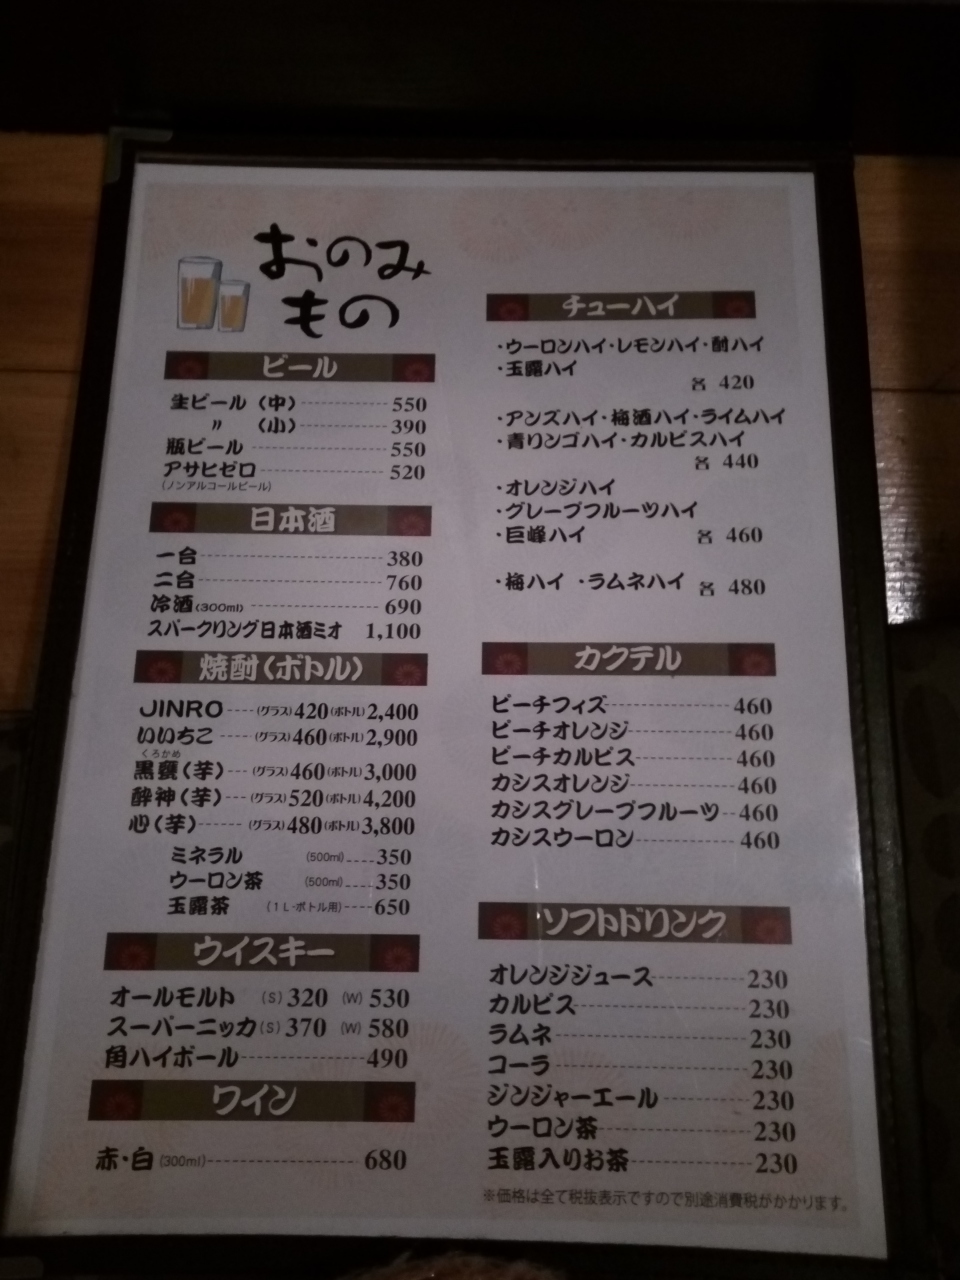 おのみ
もの
ビール
生ビール（中） 550
〃（小） 390
瓶ビール 550
アサヒゼロ 520
（ノンアルコールビール）
日本酒
一合 380
二合 760
冷酒(300ml) 690
スパークリング日本酒ミオ 1,100
焼酎（ボトル）
JINRO (グラス)420(ボトル)2,400
いいちこ (グラス)460(ボトル)2,900
くろかめ
黒甕（芋） (グラス)460(ボトル)3,000
酔神（芋） (グラス)520(ボトル)4,200
心（芋） (グラス)480(ボトル)3,800
ミネラル (500ml) 350
ウーロン茶 (500ml) 350
玉露茶 (1L・ボトル用) 650
ウイスキー
オールモルト (S)320 (W)530
スーパーニッカ(S)370 (W)580
角ハイボール 490
ワイン
赤・白(300ml) 680
チューハイ
・ウーロンハイ・レモンハイ・酎ハイ
・玉露ハイ
各 420
・アンズハイ・梅酒ハイ・ライムハイ
・青リンゴハイ・カルピスハイ
各 440
・オレンジハイ
・グレープフルーツハイ
・巨峰ハイ 各 460
・梅ハイ ・ラムネハイ 各 480
カクテル
ピーチフィズ 460
ピーチオレンジ 460
ピーチカルピス 460
カシスオレンジ 460
カシスグレープフルーツ 460
カシスウーロン 460
ソフトドリンク
オレンジジュース 230
カルピス 230
ラムネ 230
コーラ 230
ジンジャーエール 230
ウーロン茶 230
玉露入りお茶 230
※価格は全て税抜表示ですので別途消費税がかかります。